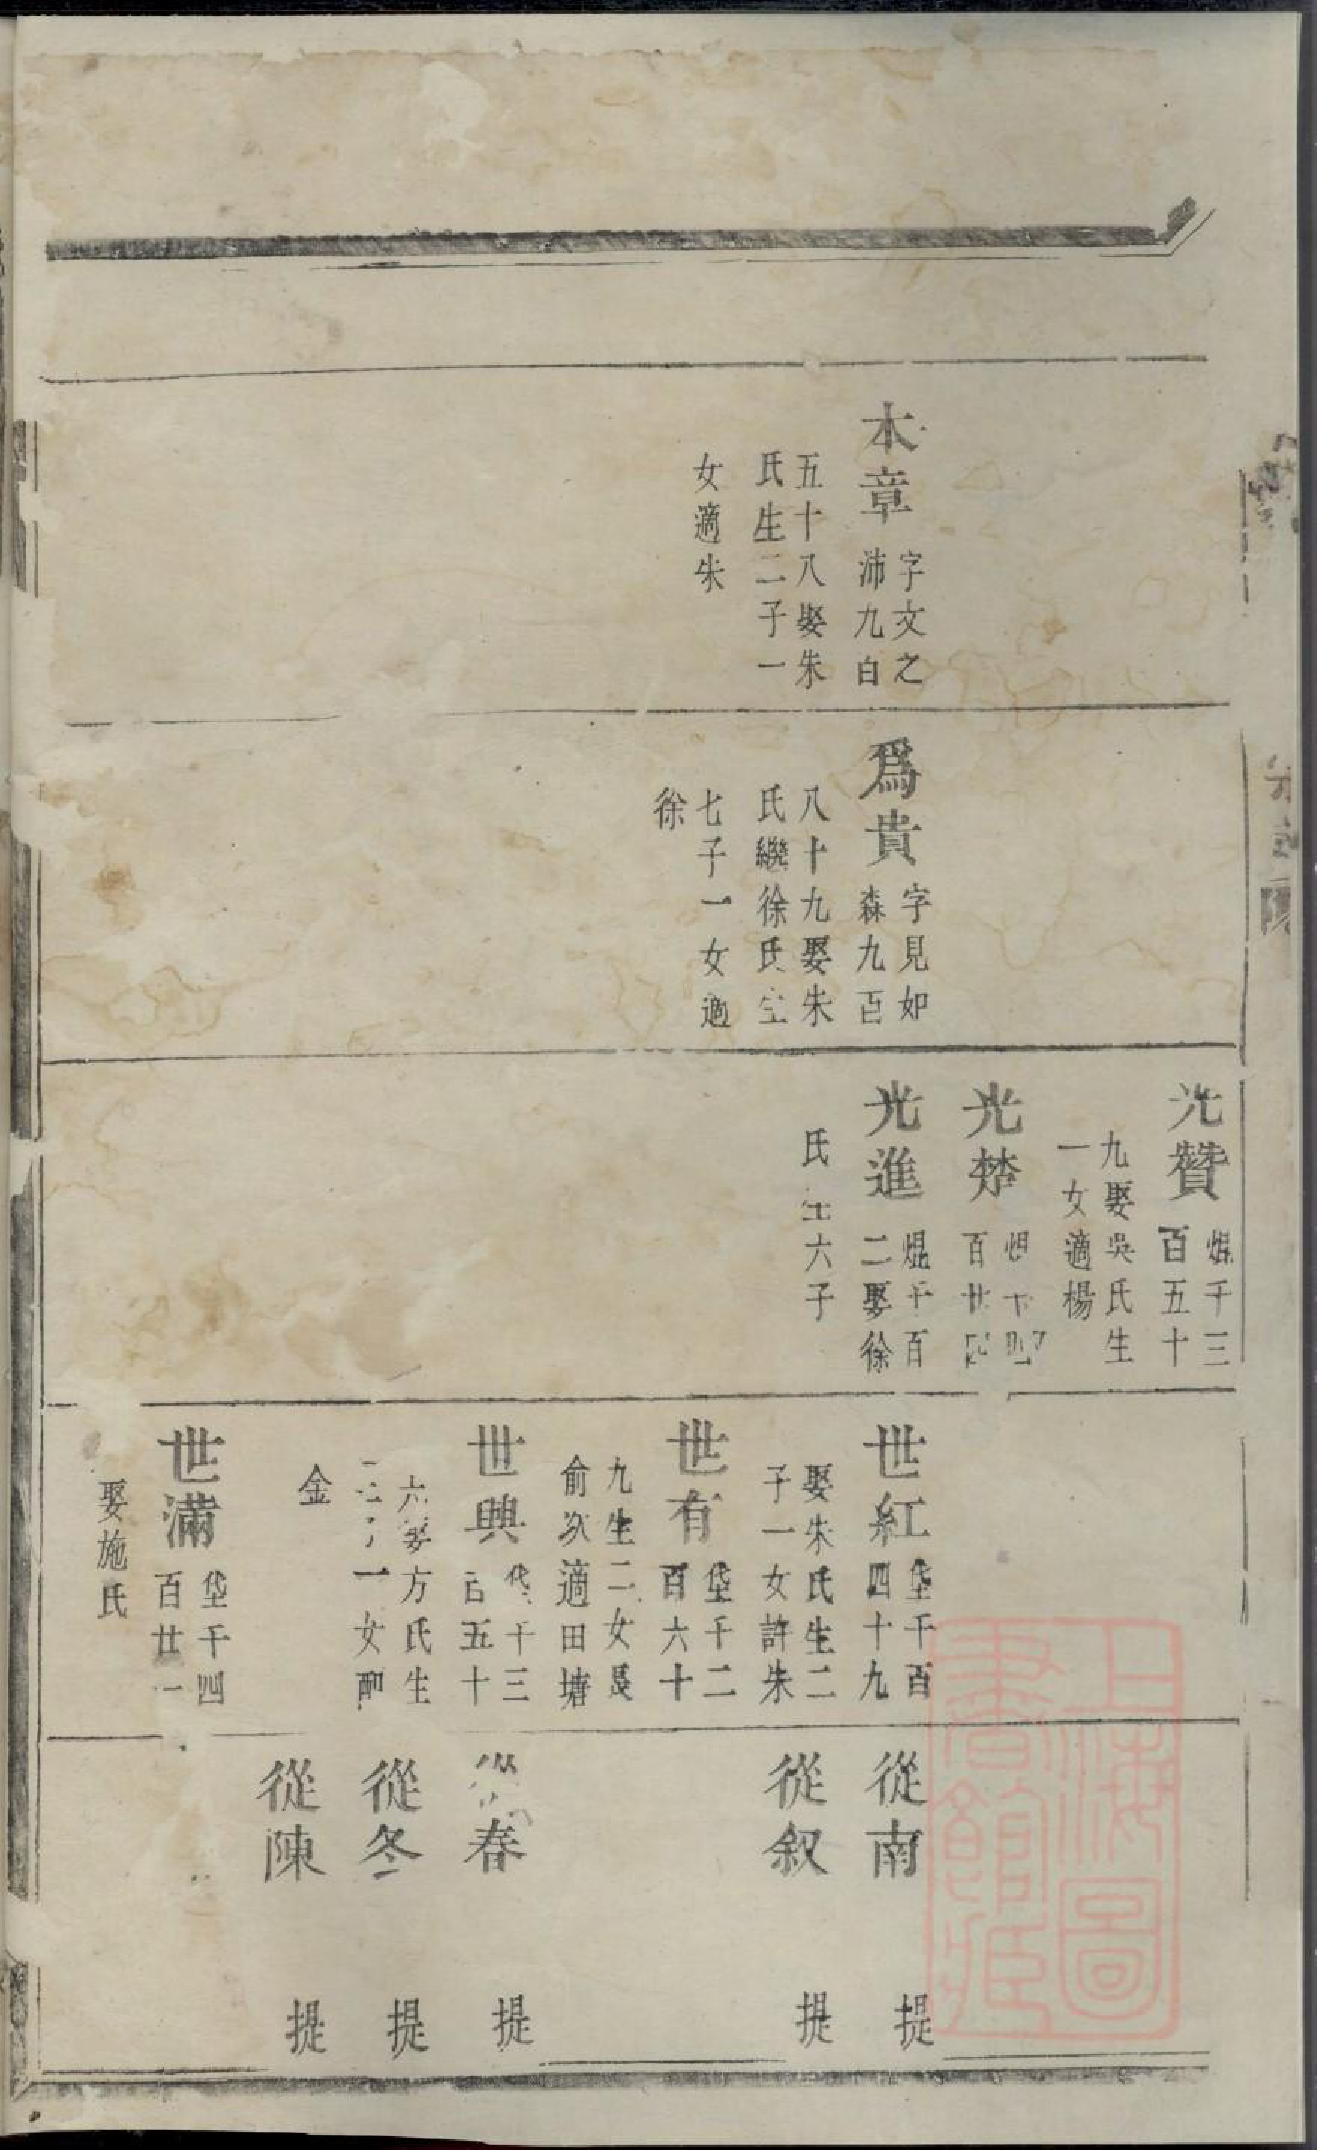 本章
字文之
沛九百
五十八娶朱
氏生二子一
女適朱
爲貴
字見如
森九百
八十九娶朱
氏繼徐氏生
七子一女適
徐
光贊
焜千三
百五十
九娶吳氏生
一女適楊
光楚
百廿四
光進
焜千百
二娶徐
氏生六子
世紅
垡千百
四十九
娶朱氏生二
子一女許朱
世有
垡千二
百六十
九生二女長
俞次適田塘
世興
垡千三
百五十
六娶方氏生
一女
金
世滿
垡千四
百廿一
娶施氏
從南
提
從叙
提
從春
提
從冬
提
從陳
提
上海圖
書館藏